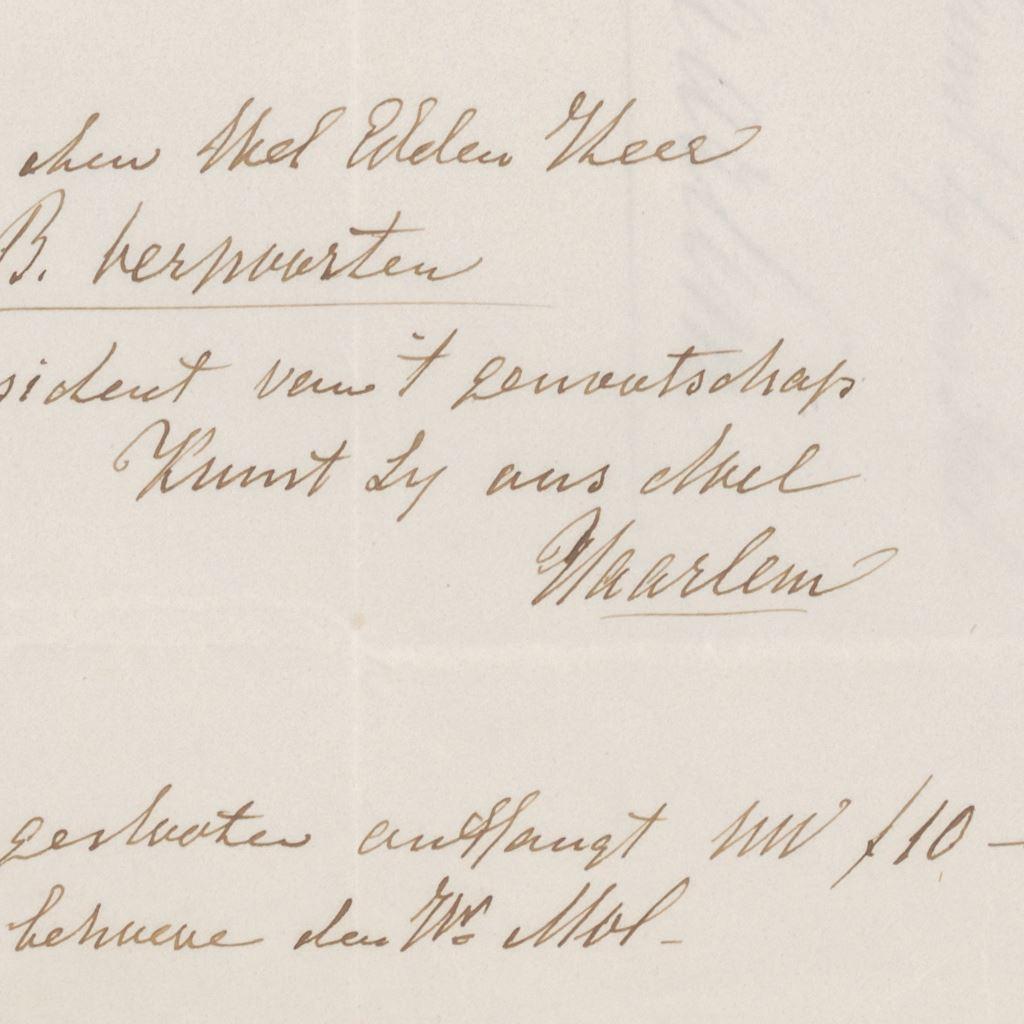 den Wel Edelen Heer
B. Verpoorten
sident van 't genootschap
Kunst Zij ons doel
Haarlem
geslooten ontfangt UW f 10 —
behoeve den Hr. Mol -